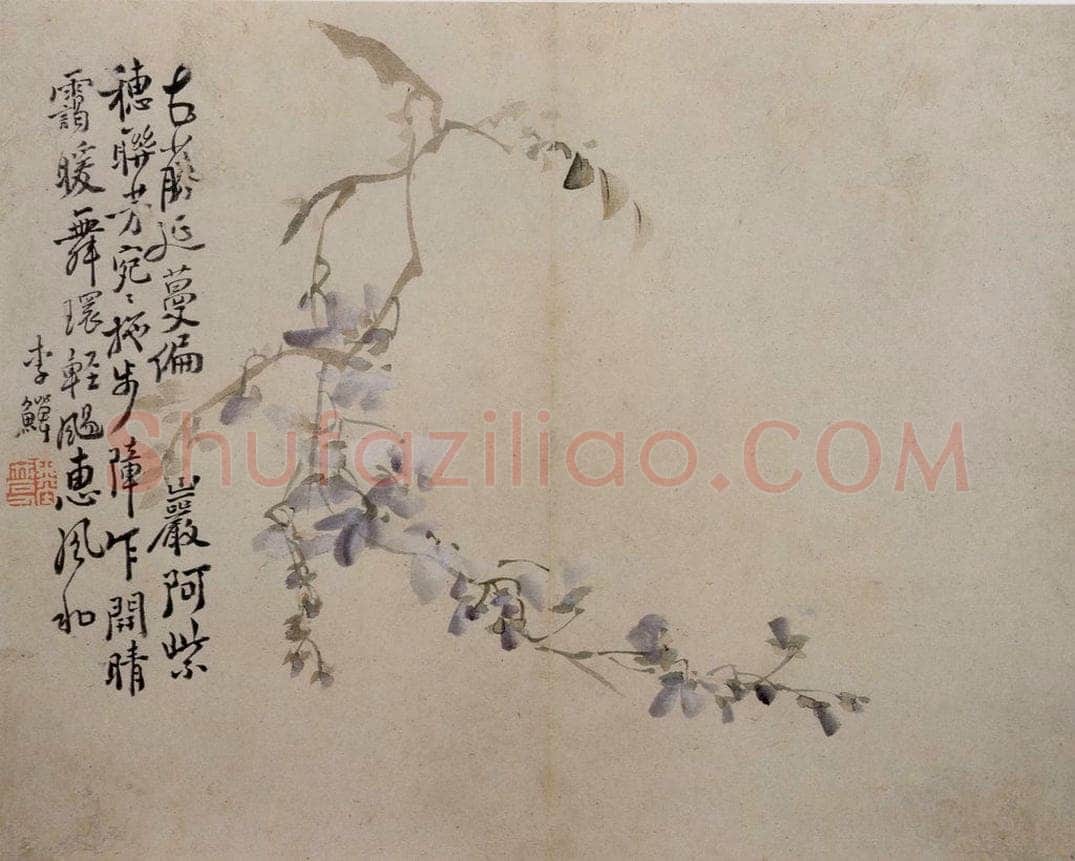 古藤延蔓偏巖阿紫
穗聯芳宛〻拖步障乍開晴
靄暖舞環輕颺惠風和
李鱓
Shufaziliao.COM